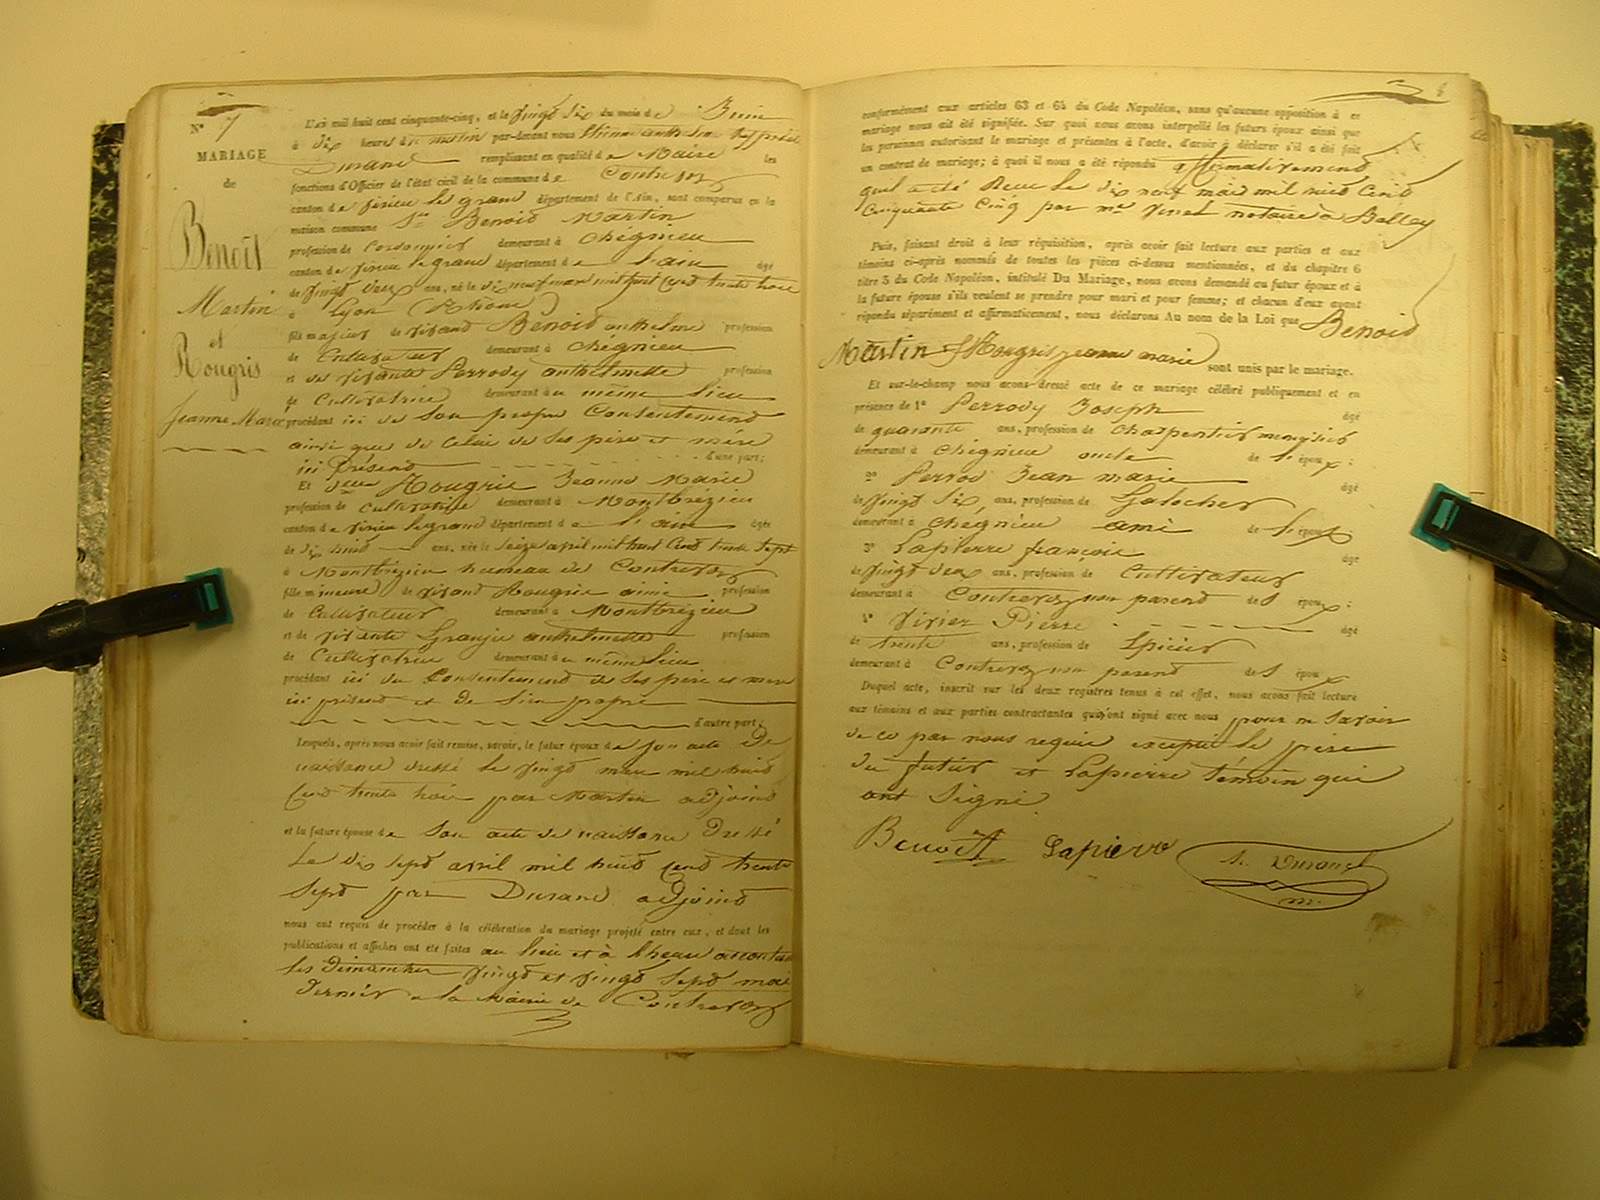 N° 7
MARIAGE
de
Benoît
Martin
et
Rougris
Jeanne Marie
L'an mil huit cent cinquante-cinq, et le vingt six du mois de Juin
à dix heures du matin par-devant nous Etienne anthelme hyppolite
Durand remplissant en qualité de Maire les
fonctions d'Officier de l'état civil de la commune de Contrevoz
canton de virieu le grand département de l'Ain, sont comparus en la
maison commune Sr Benoid Martin
profession de Cordonnier demeurant à Chégnieu
canton de virieu le grand département de l'ain âgé
de vingt deux ans, né le dix neuf mars mil huit cent trente trois
à Lyon (Rhône)
fils majeur de vivant Benoid anthelme profession
de Cultivateur demeurant à Chégnieu
et de vivante Perrody anthelmette profession
de Cultivatrice demeurant au même lieu
procédant ici de son propre Consentement
ainsi que de Celui de ses père et mère
ici présend d'une part;
Et Dlle Rougris Jeanne Marie
profession de Cultivatrice demeurant à Montbrézieu
canton de virieu le grand département de l'ain âgée
de dix huit ans, née le seize avril mil huit Cent trente sept
à Montbrézieu hameau de Contrevoz
fille mineure de vivant Rougris aimé profession
de Cultivateur demeurant à Montbrézieu
et de vivante Granju anthelmette profession
de Cultivatrice demeurant au même lieu
procédant ici du Consentement de ses père et mère
ici présend et de sien propre
d'autre part;
Lesquels, après nous avoir fait remise, savoir, le futur époux de son acte De
naissance dressé le vingt mars mil huit
Cent trente trois par Martin adjoint
et la future épouse de son acte de naissance Dressé
Le dix sept avril mil huit Cent trente
sept par Durand adjoint
nous ont requis de procéder à la célébration du mariage projeté entre eux, et dont les
publications et affiches ont été faites au lieu et à l'heure accoutumés
les Dimanches vingt et vingt sept mai
dernier a la Mairie de Contrevoz
conformément aux articles 63 et 64 du Code Napoléon, sans qu'aucune opposition à ce
mariage nous ait été signifiée. Sur quoi nous avons interpellé les futurs époux ainsi que
les personnes autorisant le mariage et présentes à l'acte, d'avoir à déclarer s'il a été fait
un contrat de mariage; à quoi il nous a été répondu affirmativement
quil a été Reçu Le dix neuf mai mil huit Cent
Cinquante Cinq par me vinet notaire à Belley
Puis, faisant droit à leur réquisition, après avoir fait lecture aux parties et aux
témoins ci-après nommés de toutes les pièces ci-dessus mentionnées, et du chapitre 6
titre 5 du Code Napoléon, intitulé Du Mariage, nous avons demandé au futur époux et à
la future épouse s'ils veulent se prendre pour mari et pour femme; et chacun d'eux ayant
répondu séparément et affirmativement, nous déclarons Au nom de la Loi que Benoid
Martin & Rougris jeanne marie sont unis par le mariage.
Et sur-le-champ nous avons dressé acte de ce mariage célébré publiquement et en
présence de 1° Perrody Joseph âgé
de quarante ans, profession de Charpentier menuisier
demeurant à Chégnieu oncle de l' époux;
2° Perrod Jean marie âgé
de vingt six ans, profession de Galocher
demeurant à Chégnieu ami de l' époux
3° Lapierre françois âgé
de vingt deux ans, profession de Cultivateur
demeurant à Contrevoz non parend des époux;
4° Vivier Pierre âgé
de trente ans, profession de Epicier
demeurant à Contrevoz non parend des époux
Duquel acte, inscrit sur les deux registres tenus à cet effet, nous avons fait lecture
aux témoins et aux parties contractantes qui n'ont signé avec nous pour ne savoir
de ce par nous requis excepté le père
du futur et Lapierre témoin qui
ont signé
Benoît Lapierre h. Durand
m.